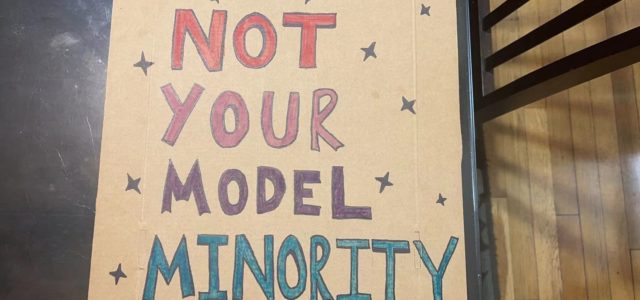 NOT
YOUR
MODEL
MINORITY